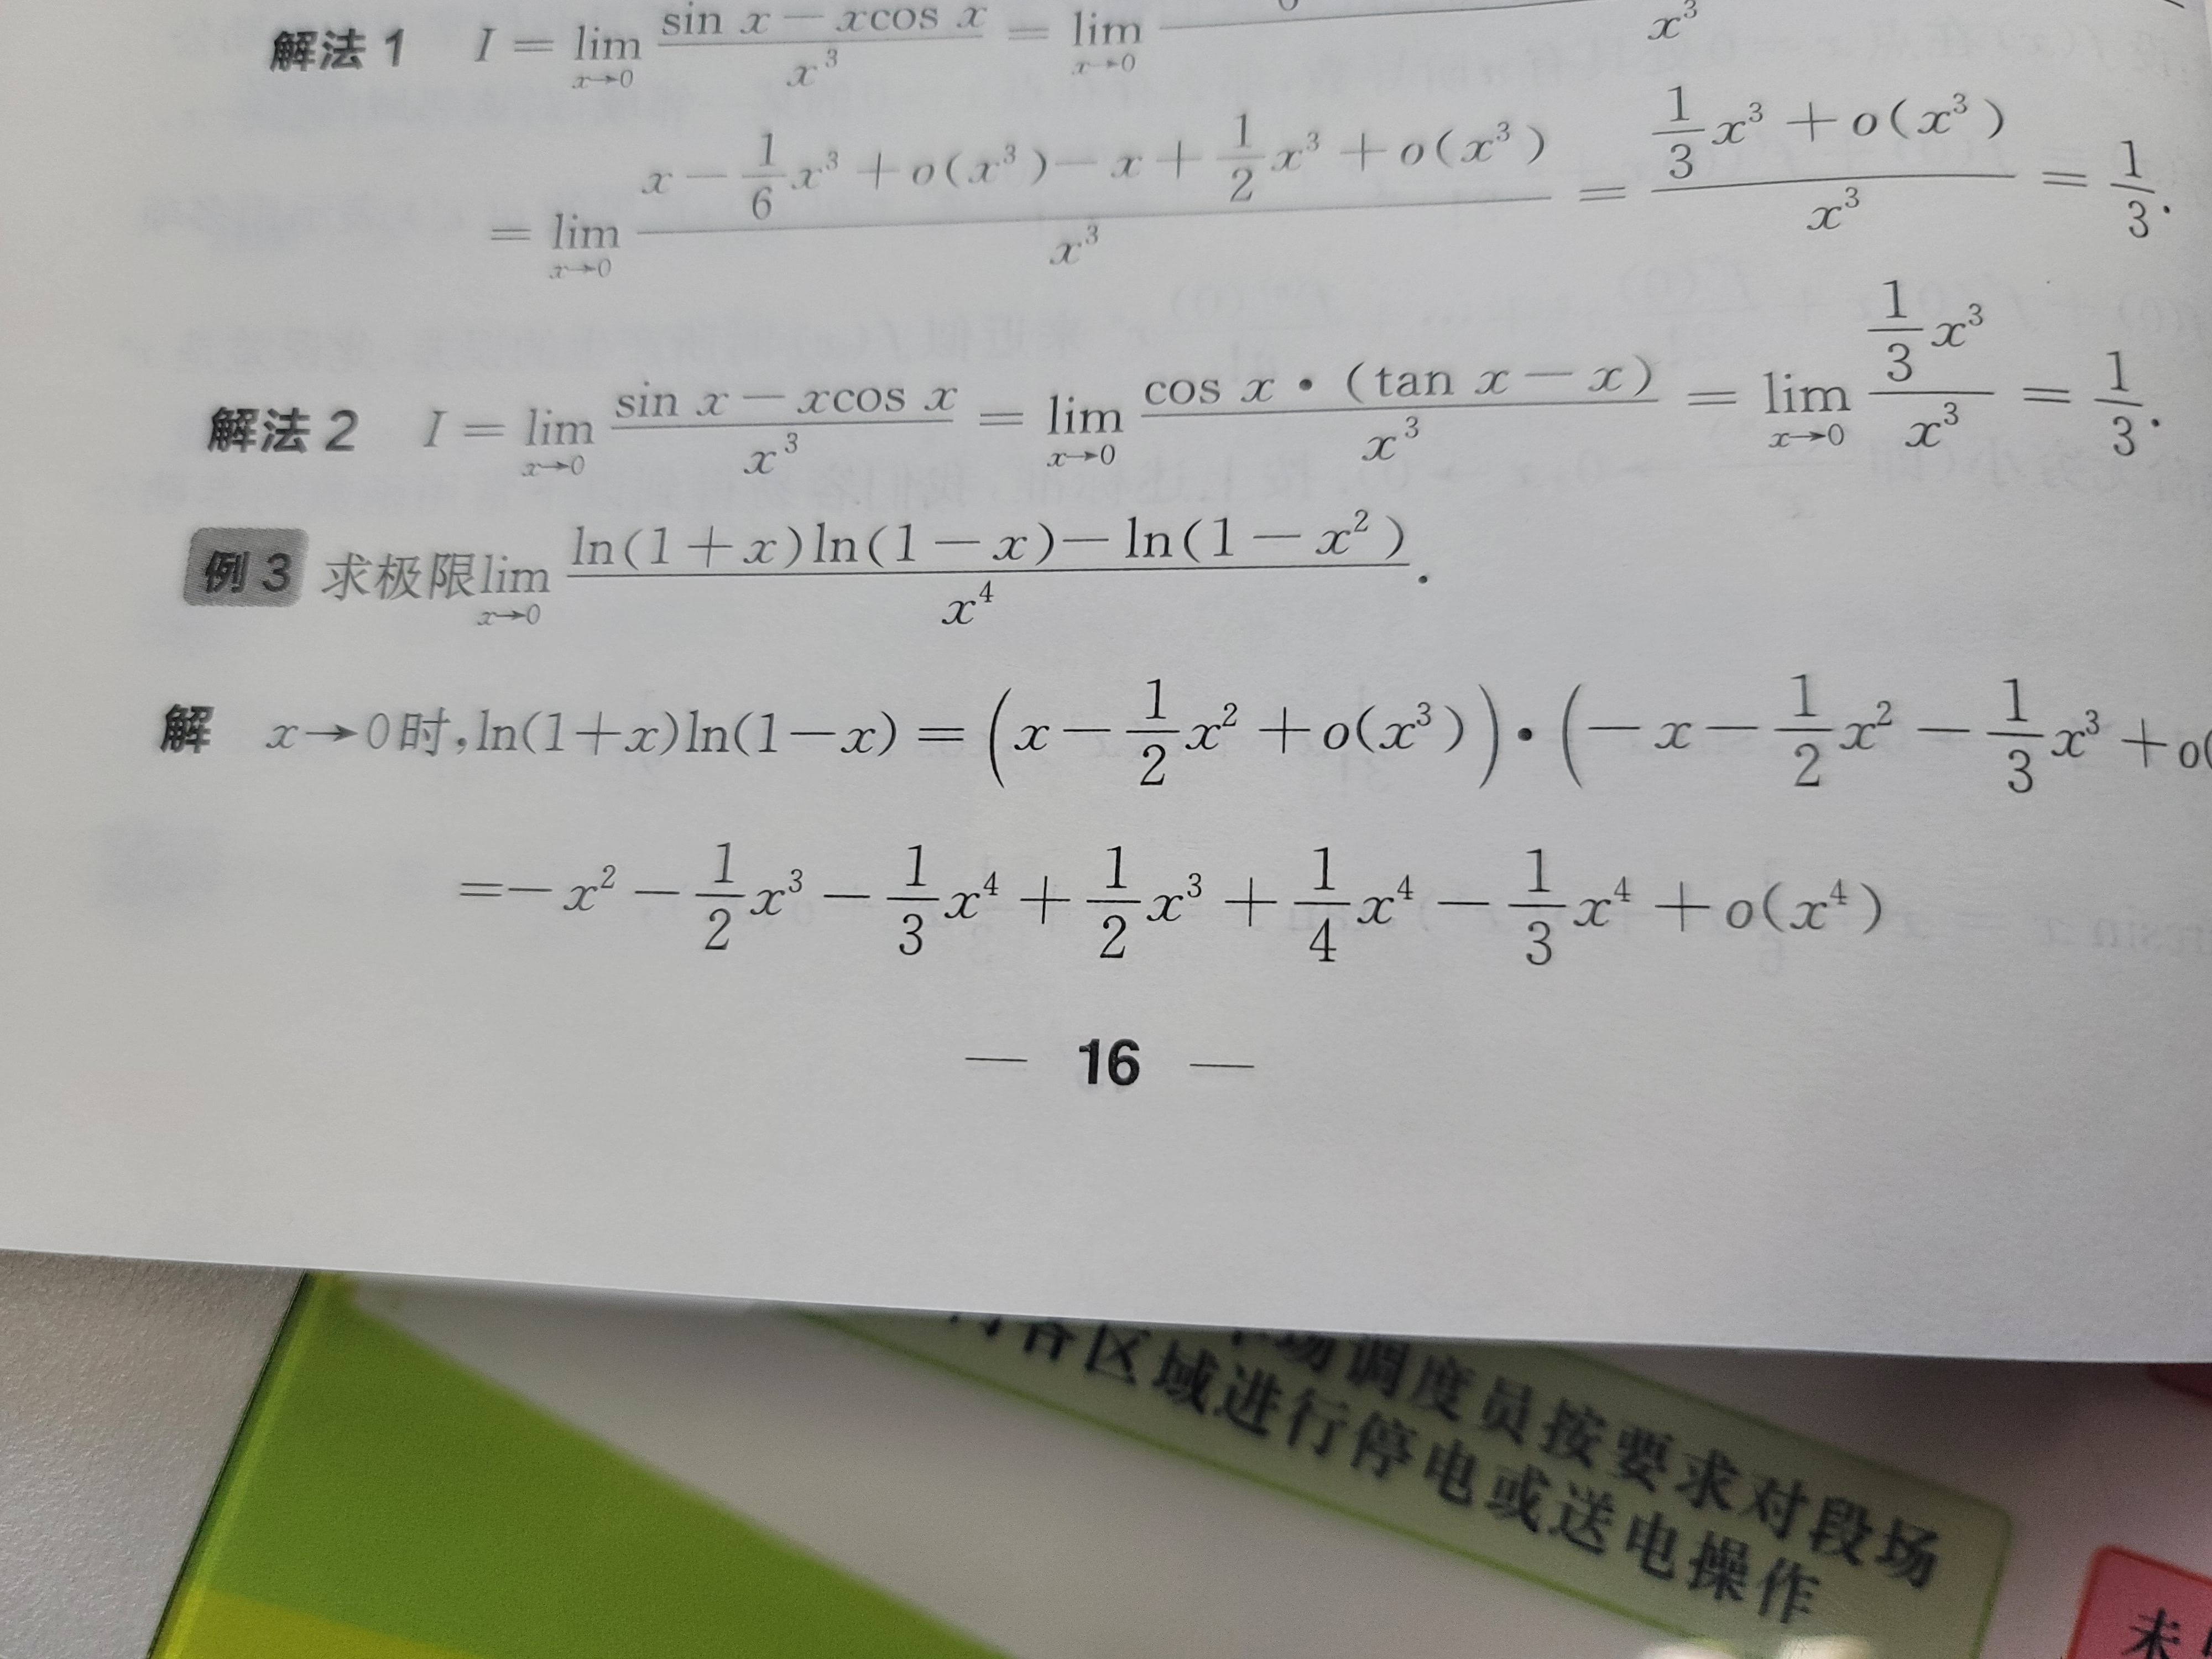 解法1 I = lim_{x→0} \frac{sin x − xcos x}{x^3} = lim_{x→0} \frac{}{x^3}
= lim_{x→0} \frac{x − \frac{1}{6}x^3 + o(x^3) − x + \frac{1}{2}x^3 + o(x^3)}{x^3} = \frac{\frac{1}{3}x^3 + o(x^3)}{x^3} = \frac{1}{3}.
解法2 I = lim_{x→0} \frac{sin x − xcos x}{x^3} = lim_{x→0} \frac{cos x • (tan x − x)}{x^3} = lim_{x→0} \frac{\frac{1}{3}x^3}{x^3} = \frac{1}{3}.
例3 求极限lim_{x→0} \frac{ln(1+x)ln(1−x)−ln(1−x^2)}{x^4}.
解 x→0时,ln(1+x)ln(1−x) = (x − \frac{1}{2}x^2 + o(x^3)) • (−x − \frac{1}{2}x^2 − \frac{1}{3}x^3 + o(
=−x^2 − \frac{1}{2}x^3 − \frac{1}{3}x^4 + \frac{1}{2}x^3 + \frac{1}{4}x^4 − \frac{1}{3}x^4 + o(x^4)
— 16 —
场调度员按要求对段场
各区域进行停电或送电操作
未